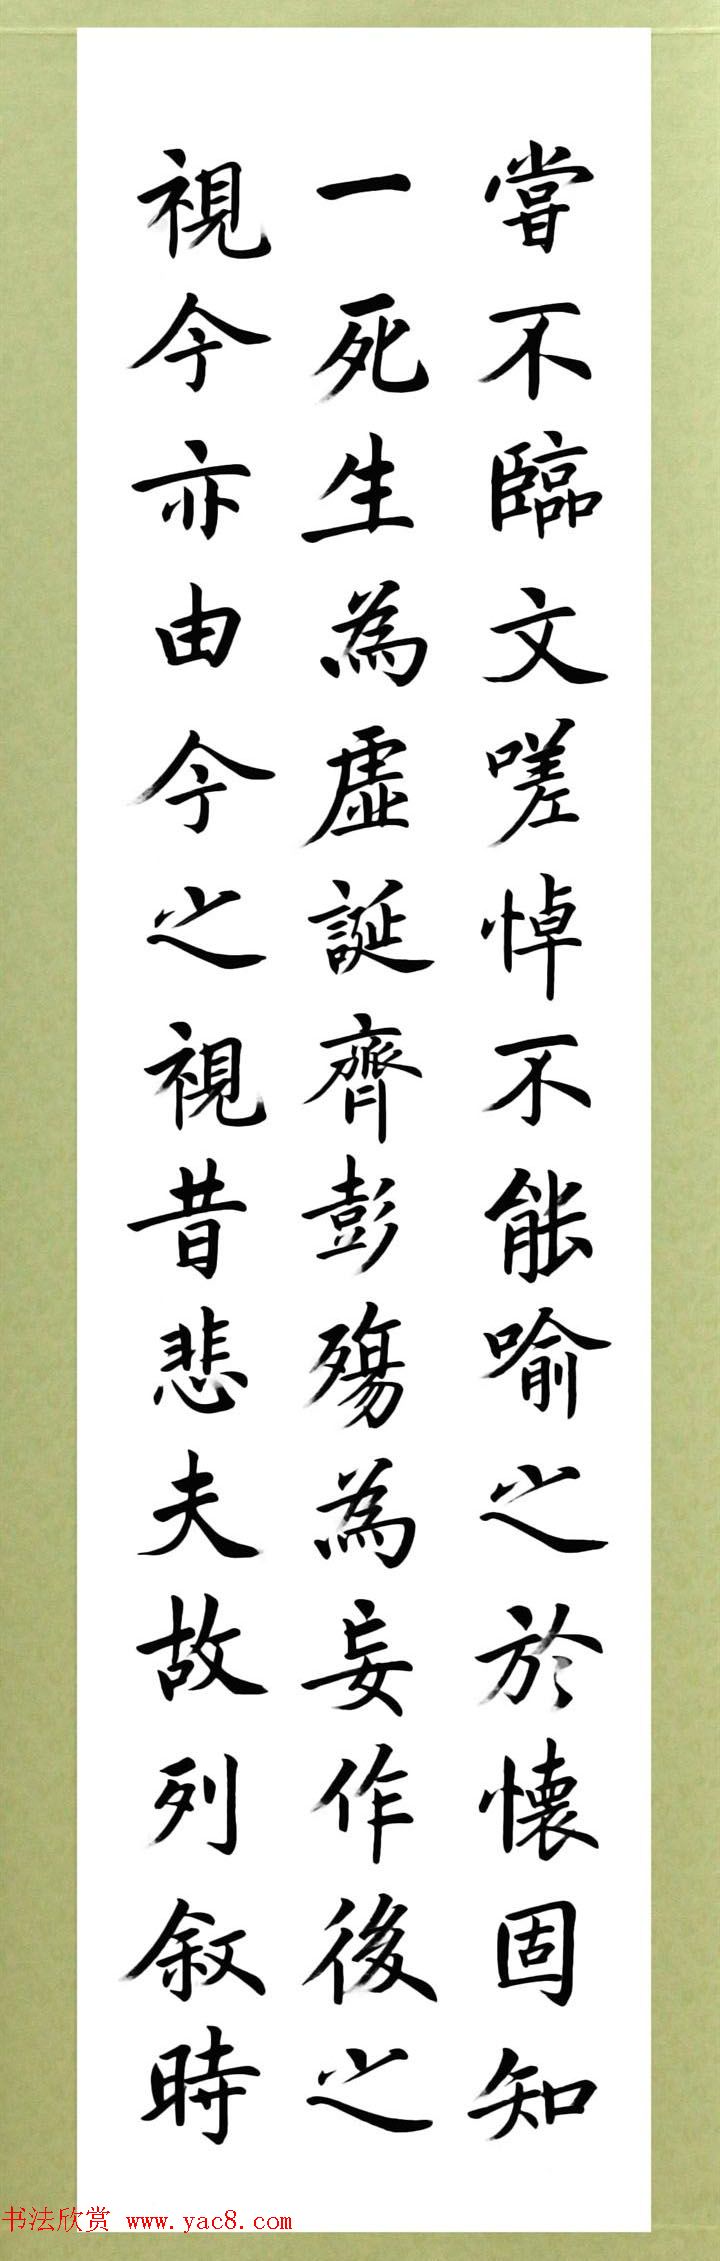 嘗不臨文嗟悼不能喻之於懷固知
一死生為虛誕齊彭殤為妄作後之
視今亦由今之視昔悲夫故列叙時
书法欣赏 www.yac8.com